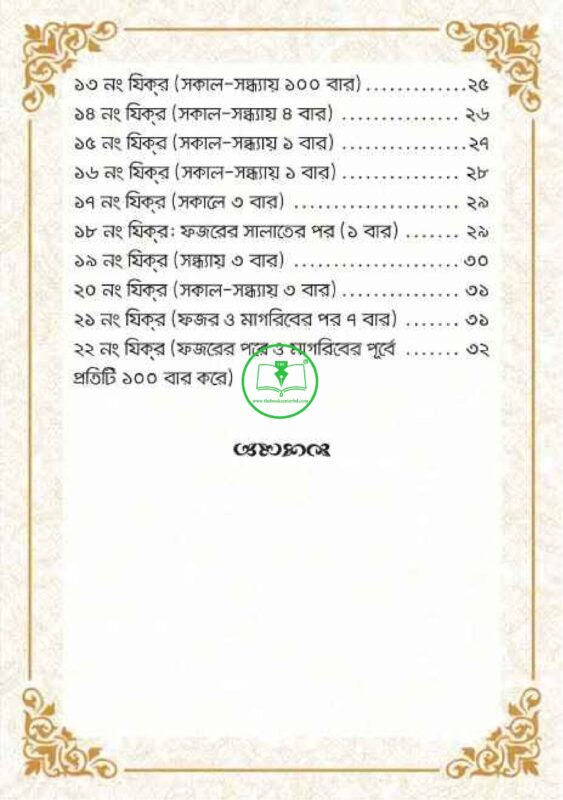 ১৩ নং যিক্‌র (সকাল-সন্ধ্যায় ১০০ বার).............২৫
১৪ নং যিক্‌র (সকাল-সন্ধ্যায় ৪ বার) ................ ২৬
১৫ নং যিক্‌র (সকাল-সন্ধ্যায় ১ বার) ..................২৭
১৬ নং যিক্‌র (সকাল-সন্ধ্যায় ১ বার) ................. ২৮
১৭ নং যিক্‌র (সকালে ৩ বার) ....................... ২৯
১৮ নং যিক্‌র: ফজরের সালাতের পর (১ বার) ....... ২৯
১৯ নং যিক্‌র (সন্ধ্যায় ৩ বার) .......................৩০
২০ নং যিক্‌র (সকাল-সন্ধ্যায় ৩ বার)................ ৩১
২১ নং যিক্‌র (ফজর ও মাগরিবের পর ৭ বার) ....... ৩১
২২ নং যিক্‌র (ফজরের পরে ও মাগরিবের পূর্বে ....... ৩২
প্রতিটি ১০০ বার করে)